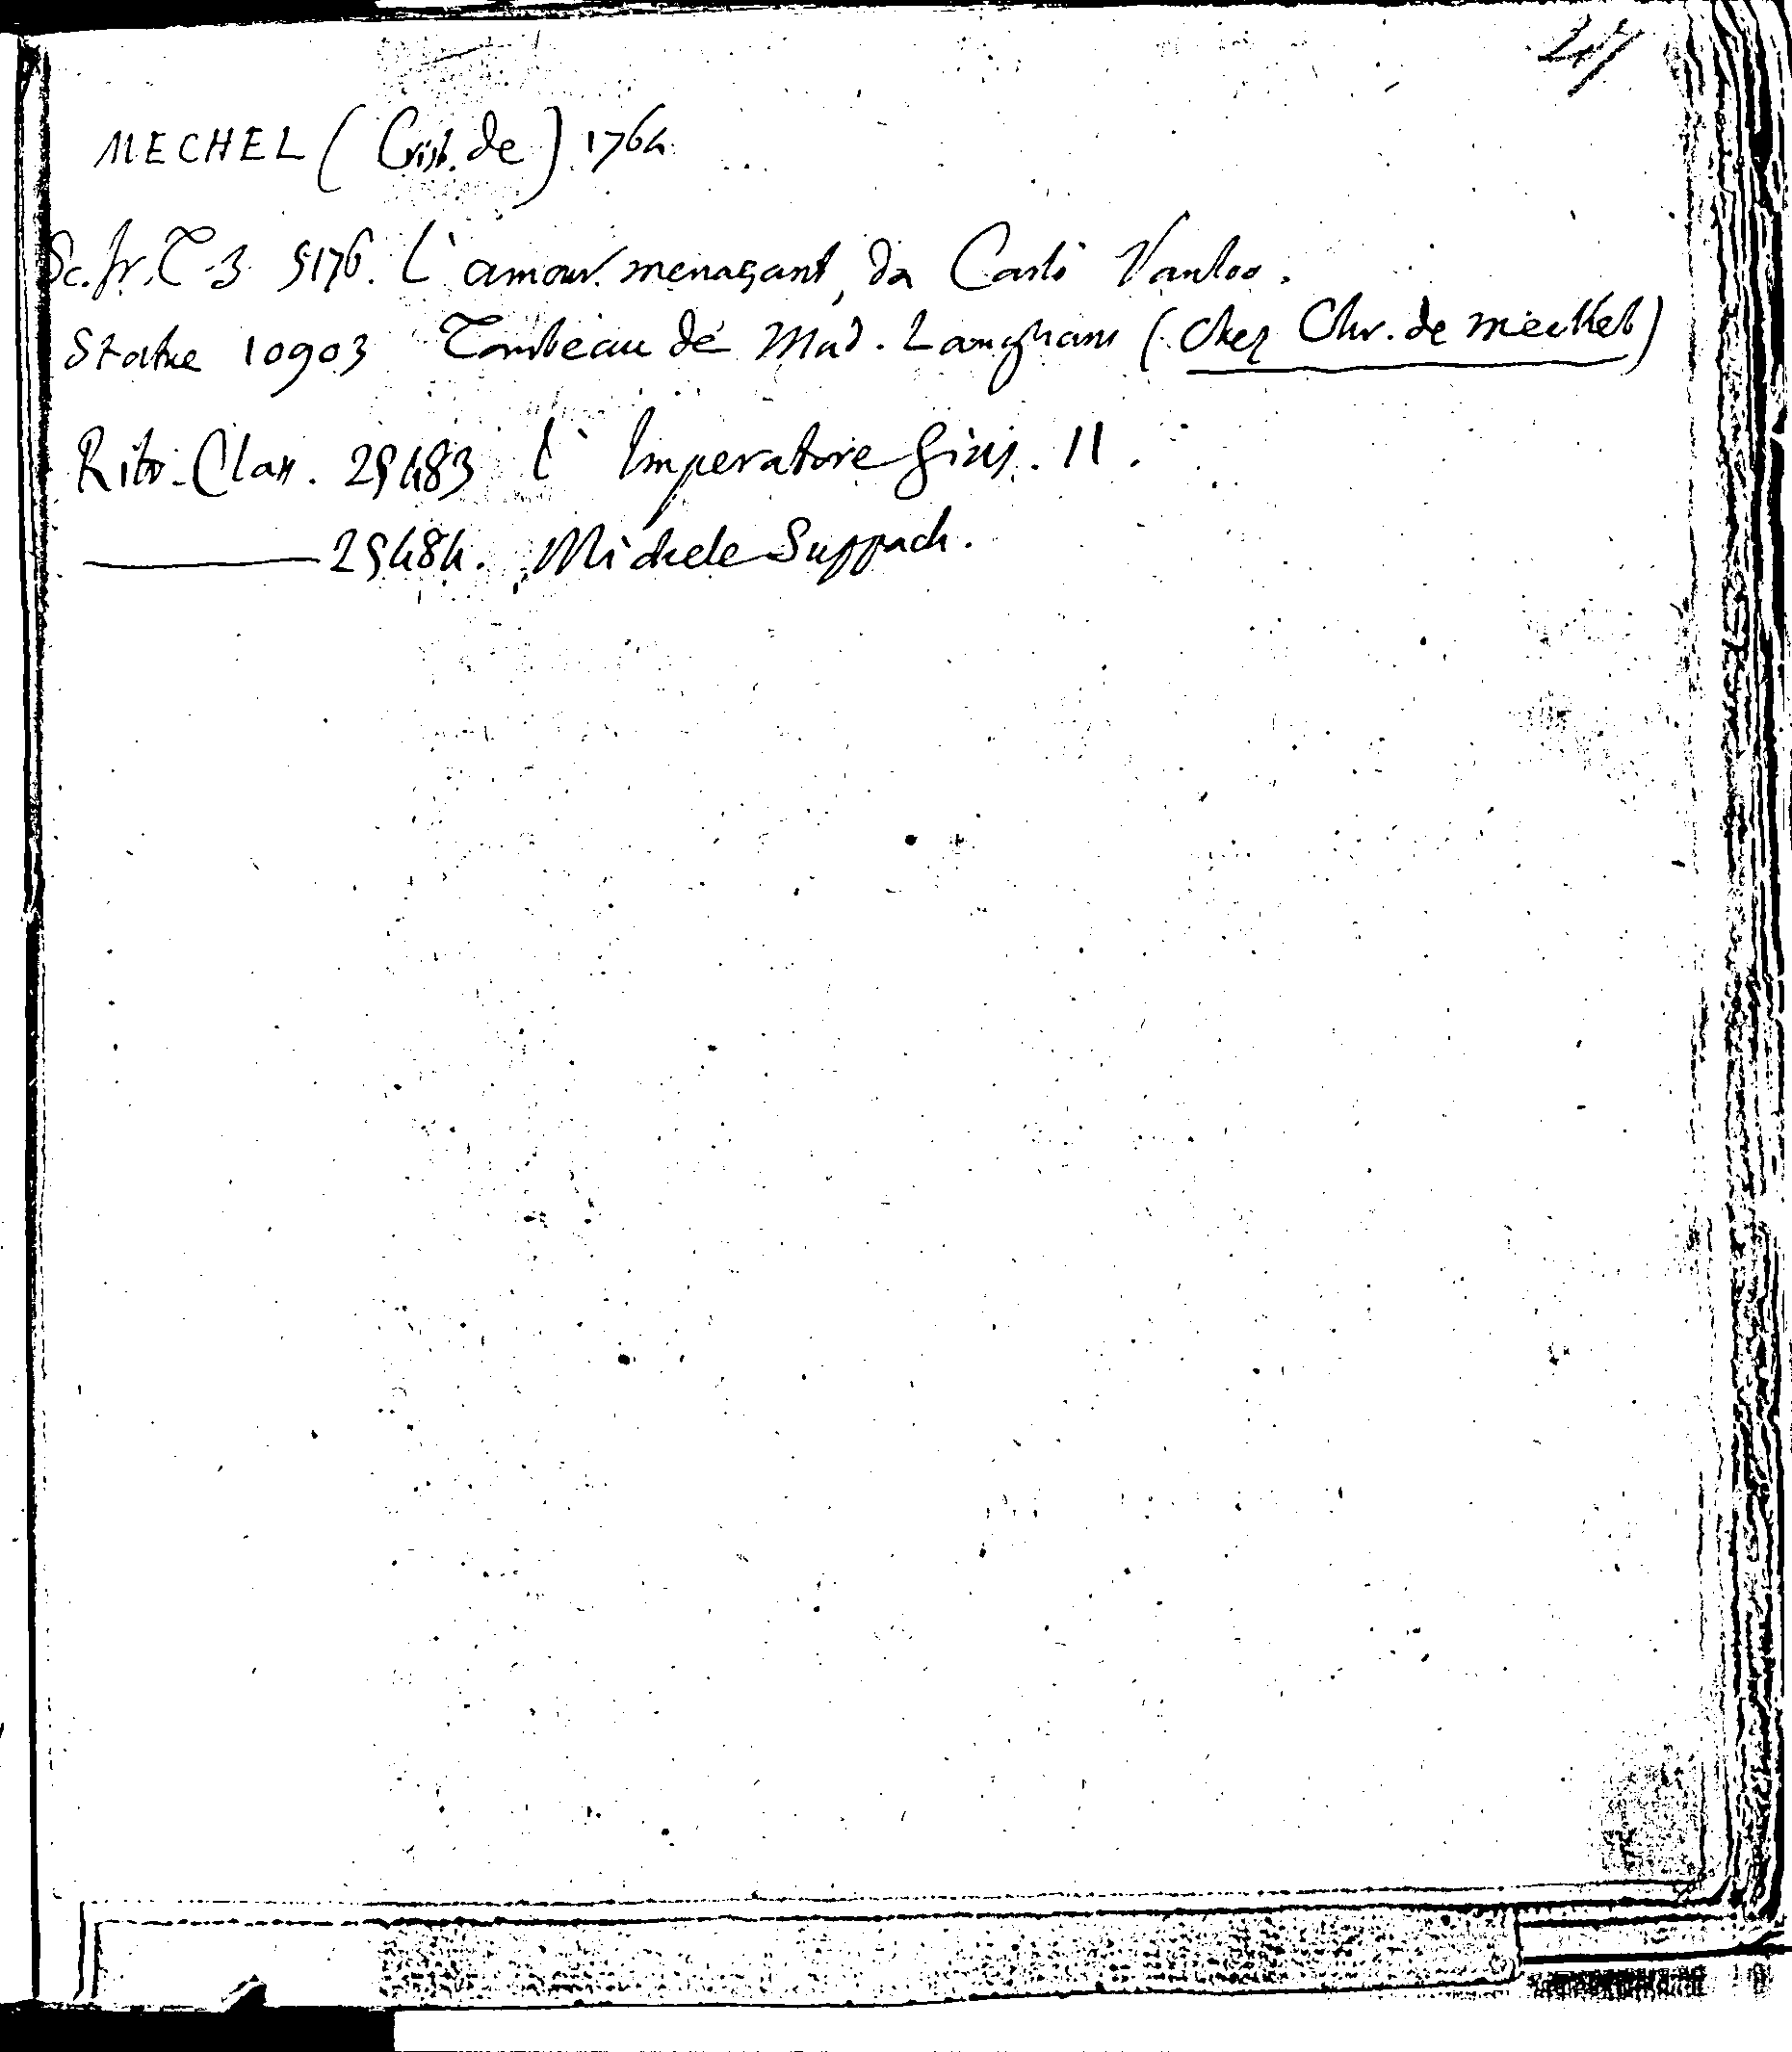 27
MECHEL (Crist. de) 1764
Sc. fr. T. 3 5176. L'amour menaçant, da Carlo Vanloo.
Statue 10903 Tombeau de Mad. Langhans (chez Chr. de Mechel)
Ritr. Class. 25483 l'Imperatore Gius. II.
——— 25484. Michele Suppach.